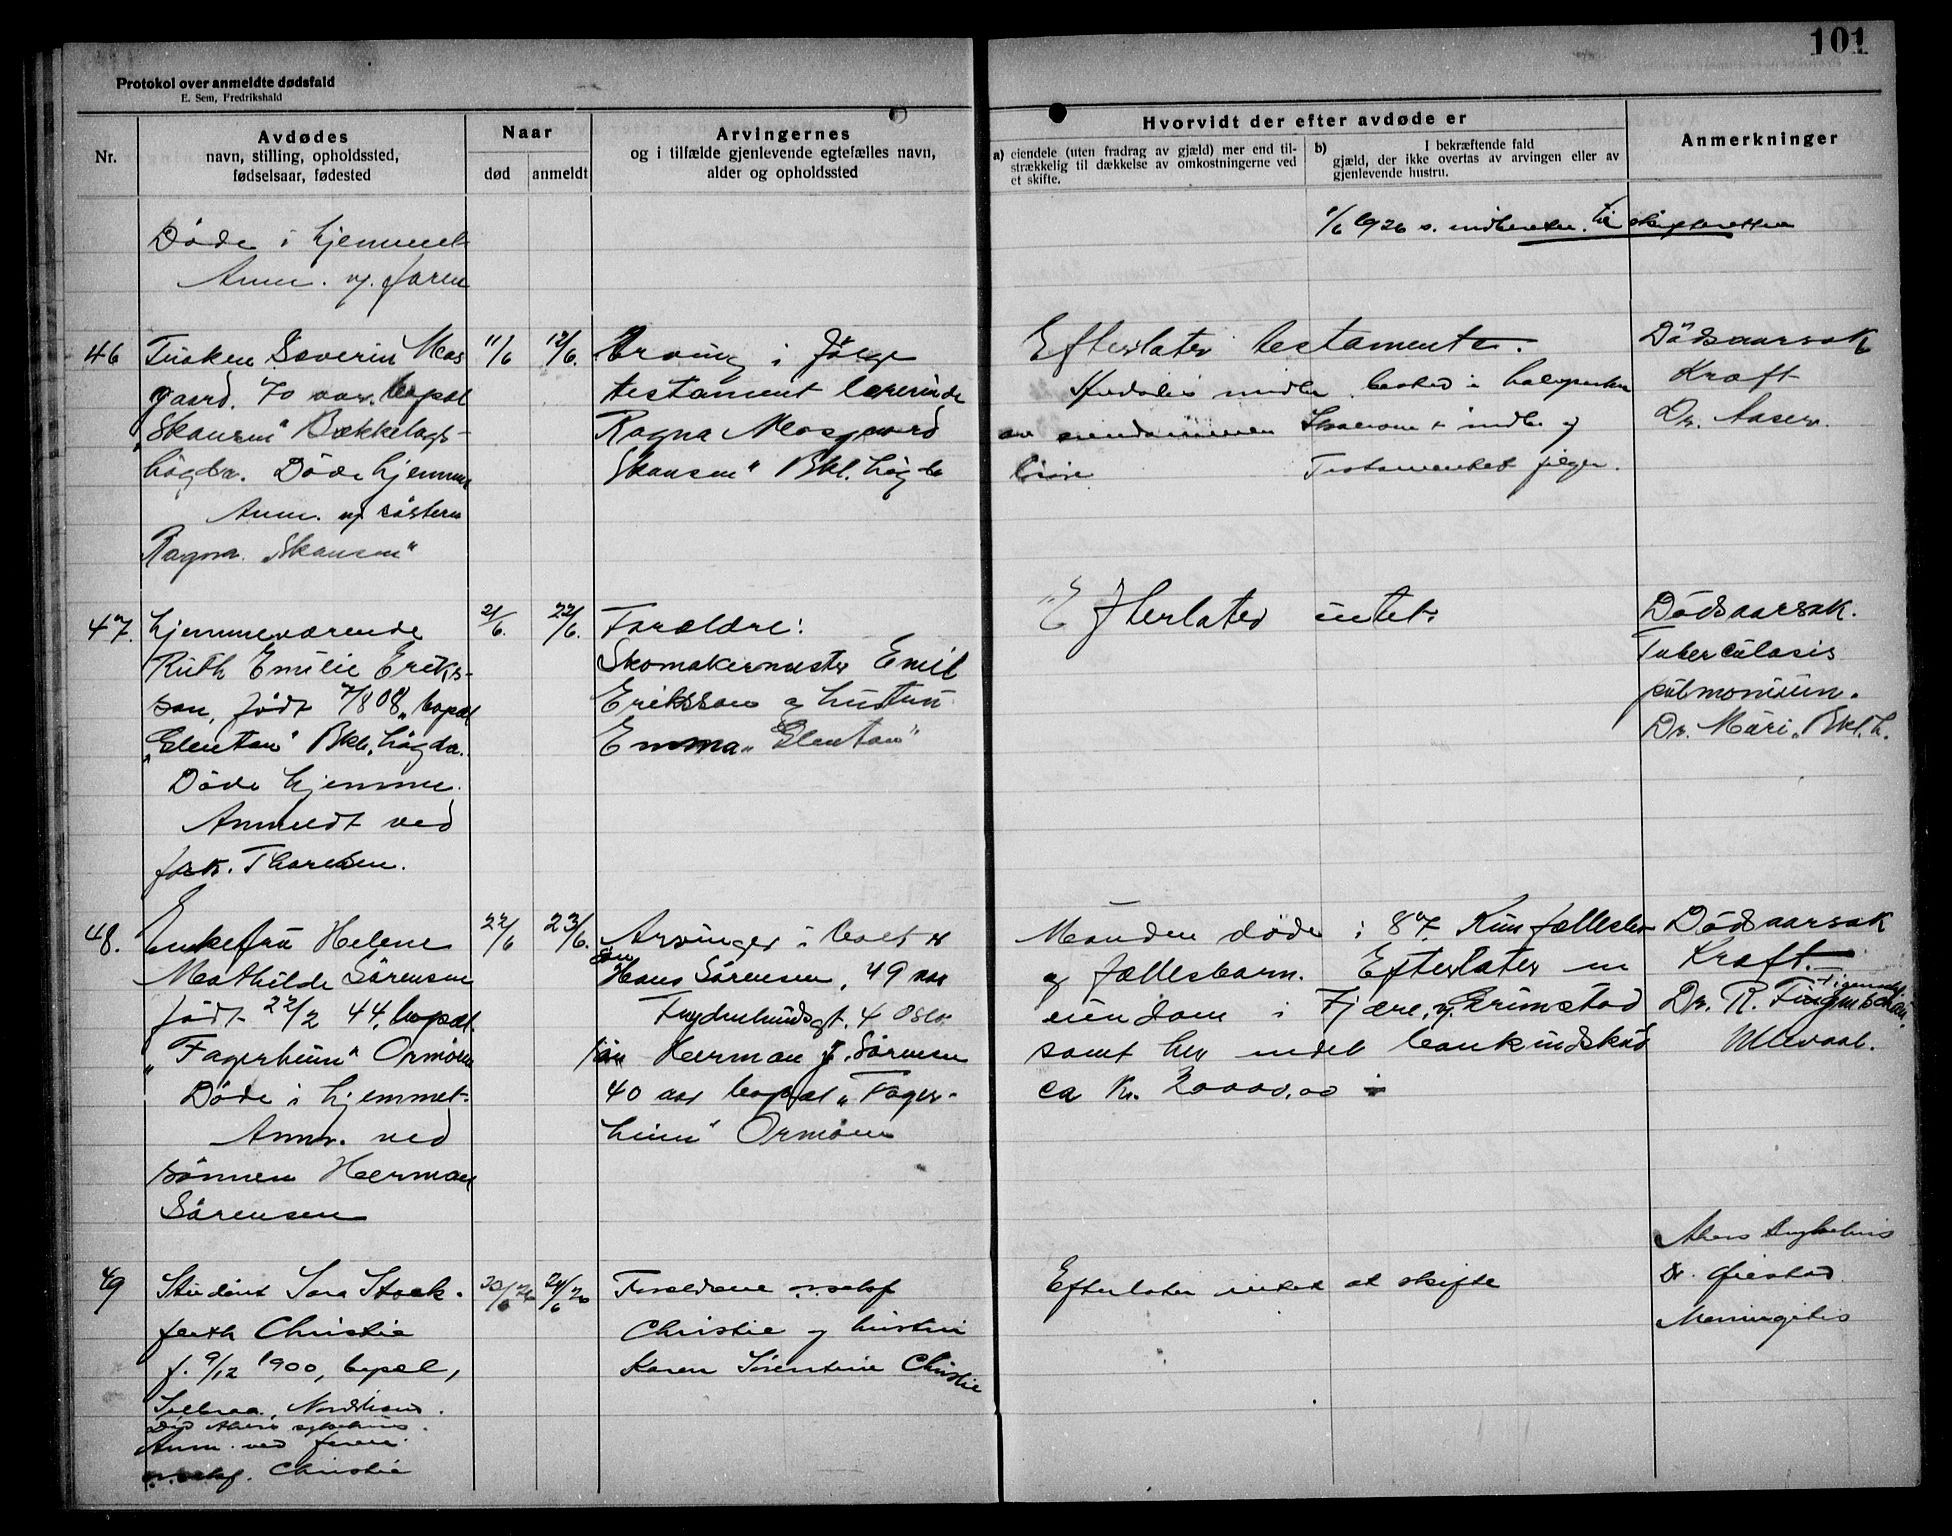 101
Protokol over anmeldte dødsfald
E. Sem, Fredrikshald
Nr.
Avdødes
navn, stilling, opholdssted,
fødselsaar, fødested
Naar
død
anmeldt
Arvingernes
og i tilfælde gjenlevende egtefælles navn,
alder og opholdssted
Hvorvidt der efter avdøde er
a) eiendele (uten fradrag av gjæld) mer end til-
strækkelig til dækkelse av omkostningerne ved
et skifte.
b) I bekræftende fald
gjæld, der ikke overtas av arvingen eller av
gjenlevende hustru.
Anmerkninger
Døde i hjemmet
Anm. v. faren
1/6 1926 s. indberetn. til skifteretten
46
Frøken Severin Mos
gaard. 70 aar. bopæl
„Skansen" Bækkelags-
høgda. Døde hjemme
Anm. av søstern
Ragna „Skansen"
11/6
12/6.
Arving i følge
testament lærerinde
Ragna Mosgaard
Skansen" Bkl. høgda
Efterlater testamente.
midler
av eiendommen
og
Testamentet følger.
Dödsaarsak
Kræft
Dr. Aaser.
47.
Hjemmeværende
Ruth Emilie Eriks-
son, født 7/8 08, bopæl
„Glentan" Bkl. høgda.
Døde hjemme.
Anmeldt ved
Thoresen.
21/6.
22/6.
Forældre:
Skomakermester Emil
Eriksson og hustru
Emma „Glentan"
Efterlater intet.
Dödsaarsak.
Tuberculosis
pulmonum.
Dr. Mari, Bkl. h.
48.
Enkefru Helene
Mathilde Sörensen
født 22/2 44, bopæl
„Fagerheim" Ormøen
Døde i hjemmet.
Anm. ved
sønnen Herman
Sörensen
22/6
23/6.
Arvinger i boet er
søn
Hans Sörensen, 49 aar
Frydenlundsgt. 4 Oslo
søn Herman J. Sørensen
40 aar bopæl „Fager-
heim" Ormøen
Manden døde i 87. Kun fælles
og fællesbarn. Efterlater en
eiendom i Fjære, v. Grimstad
samt har endel bankindskud
ca kr. 20000,00
Dödsaarsak
Kræft.
Dr. R.
Ullevaal.
49
Student Sara Stock-
feth Christie
f. 9/12 1900, bopæl,
Selbraa, Nordstrand.
Død Akers sykehus.
Anm. ved faren
o.r.sakf. Christie
23/6 26
24/6 26
Forældrene o.r.sakf
Christie og hustru
Karen Sørentine Christie
Efterlater intet at skifte
Akers Sykehus
Dr. Ørestad
Meningitis